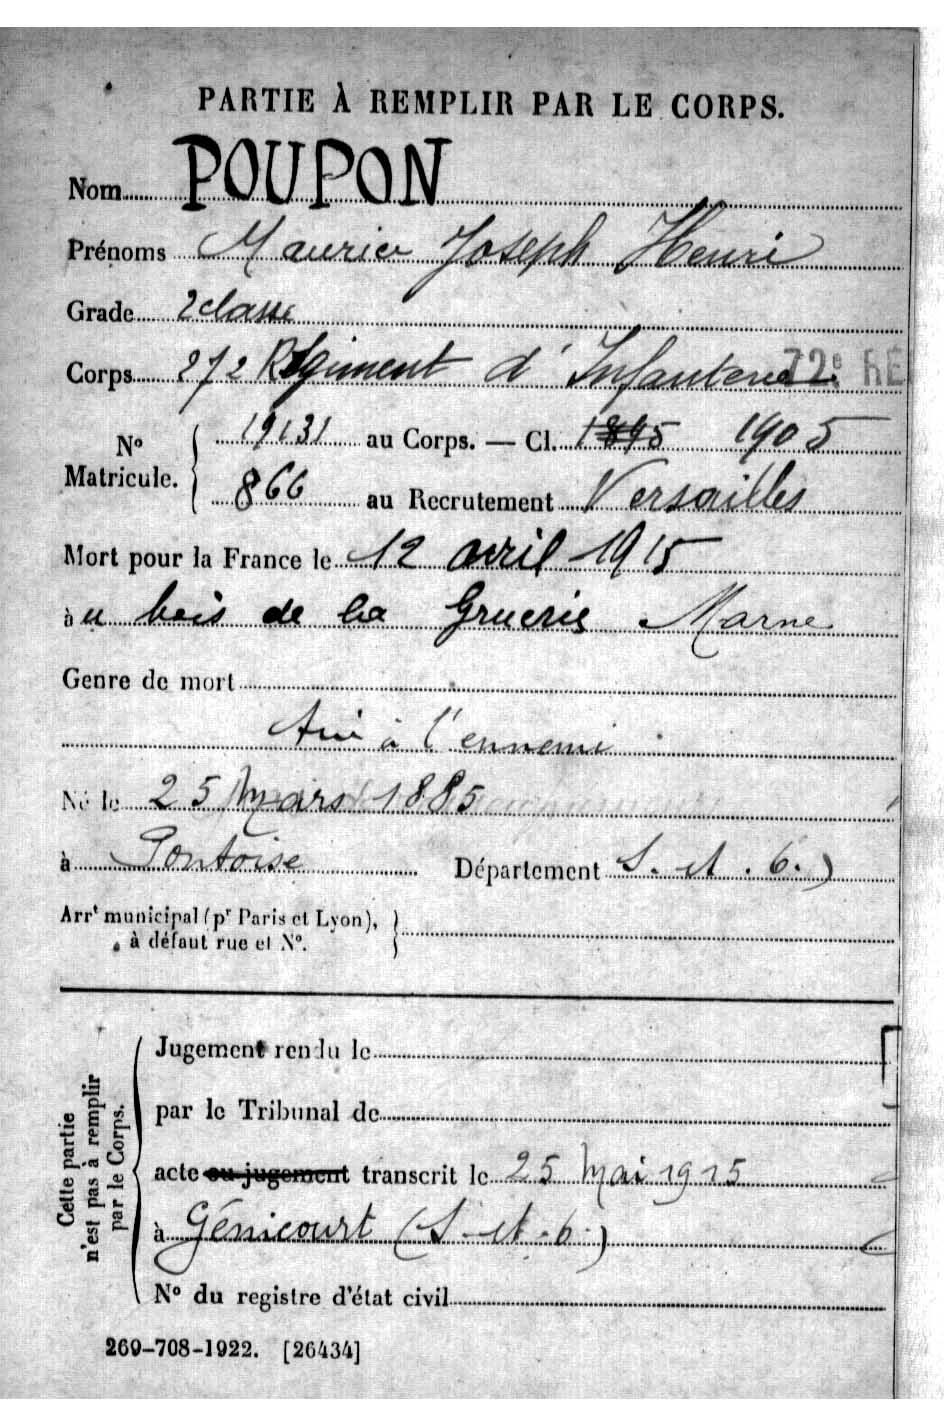 PARTIE À REMPLIR PAR LE CORPS.
Nom POUPON
Prénoms Maurice Joseph Henri
Grade 2 classe
Corps 272 Régiment d'Infanterie 72e RÉ
No Matricule. 19131 au Corps. — Cl. 1895 1905
866 au Recrutement Versailles
Mort pour la France le 12 avril 1915
à u bois de la Gruerie Marne
Genre de mort
tué à l'ennemi
Né le 25 Mars 1885
à Pontoise Département S. et. O.)
Arrt municipal (pr Paris et Lyon),
à défaut rue et No.
Cette partie n'est pas à remplir par le Corps.
Jugement rendu le
par le Tribunal de
acte ou jugement transcrit le 25 Mai 1915
à Génicourt (S. et. O.)
No du registre d'état civil
269-708-1922. [26434]